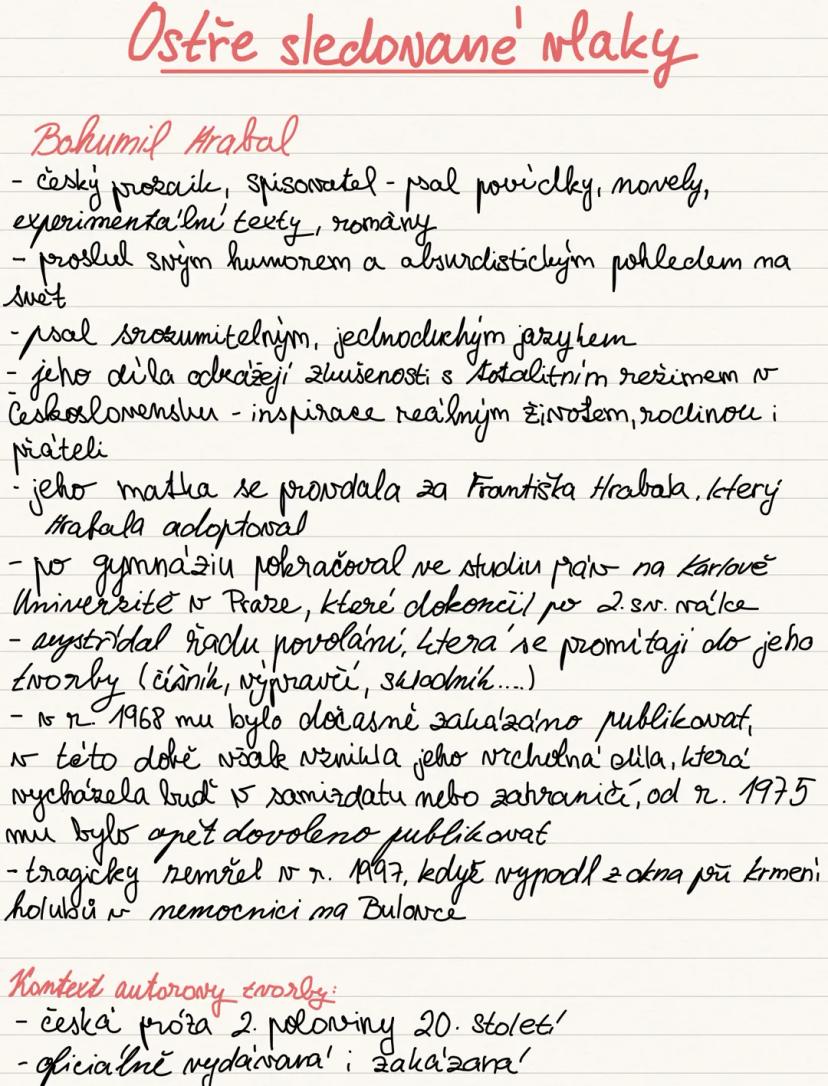 Ostře sledované vlaky
Bohumil Hrabal
- český prozaik, spisovatel - psal povídky, novely,
experimentální texty, romány
- proslul svým humorem a absurdistickým pohledem na
svět
- psal srozumitelným, jednoduchým jazykem
- jeho díla odrážejí zkušenosti s totalitním režimem v
Československu - inspirace reálným životem, rodinou i
přáteli
- jeho matka se provdala za Františka Hrabala, který
Hrabala adoptoval
- po gymnáziu pokračoval ve studiu práv na Karlově
Univerzitě v Praze, které dokončil po 2. sv. válce
- vystřídal řadu povolání, která se promítají do jeho
tvorby (číšník, výpravčí, skladník....)
- v r. 1968 mu bylo dočasně zakázáno publikovat,
v této době však vznikla jeho vrcholná díla, která
vycházela buď v samizdatu nebo zahraničí, od r. 1975
mu bylo opět dovoleno publikovat
- tragicky zemřel v r. 1997, když vypadl z okna při krmení
holubů v nemocnici na Bulovce
Kontext autorovy tvorby:
- česká próza 2. poloviny 20. století
- oficiálně vydávaná i zakázaná